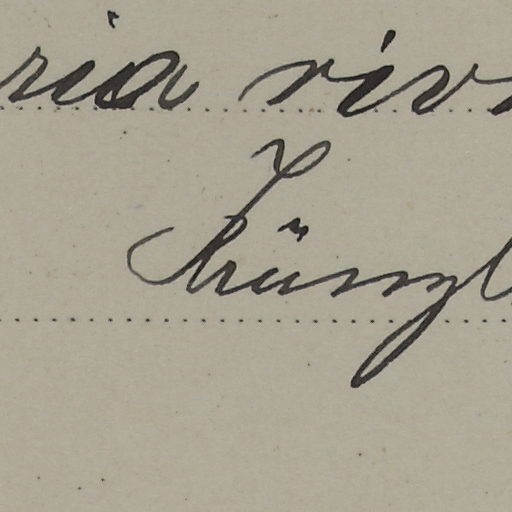 ria riv
Künzl